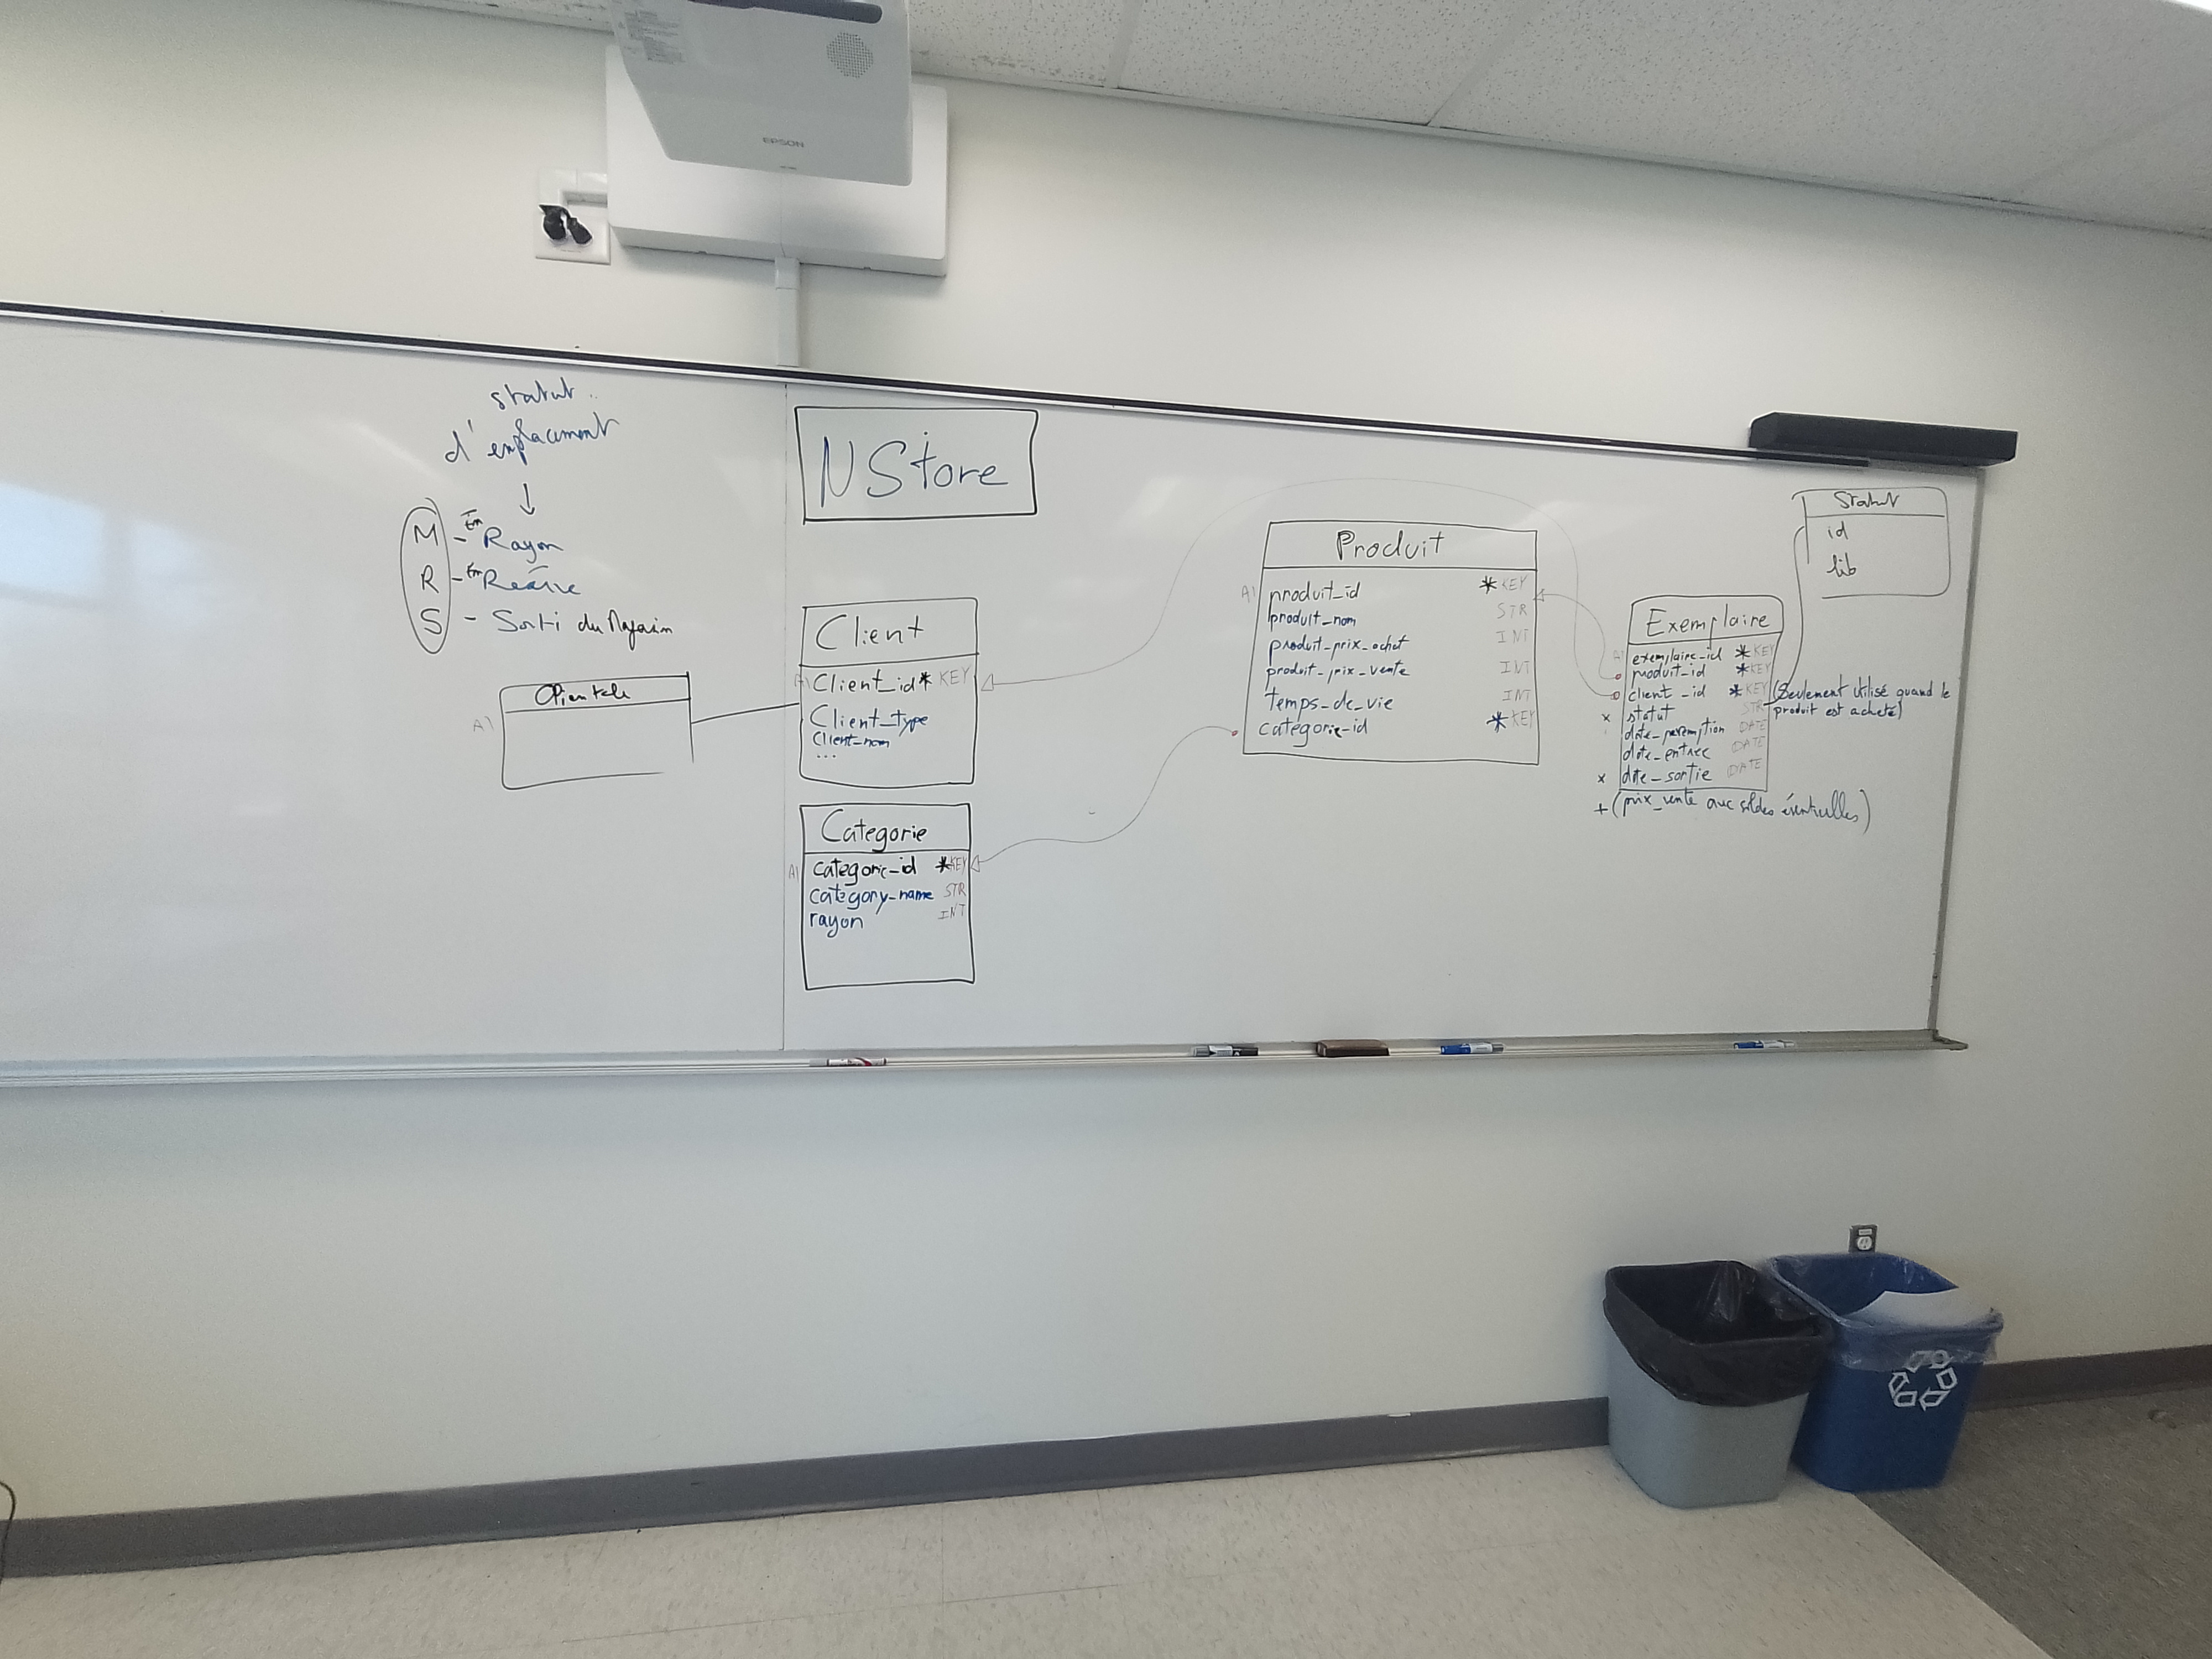 EPSON
statut
d'emplacement
M - En Rayon
R - En Reserve
S - Sorti du Magasin
NStore
Clientele
AI
Client
AI Client_id * KEY
Client_type
Client_nom
...
Categorie
AI categorie_id * KEY
category_name STR
rayon INT
Produit
AI produit_id * KEY
produit_nom STR
produit_prix_achat INT
produit_prix_vente INT
temps_de_vie INT
categorie_id * KEY
Statut
id
lib
Exemplaire
AI exemplaire_id * KEY
produit_id * KEY
client_id * KEY (Seulement utilisé quand le
produit est acheté)
x statut STR
date_peremption DATE
date_entree DATE
x date_sortie DATE
+ (prix_vente avec soldes éventuelles)